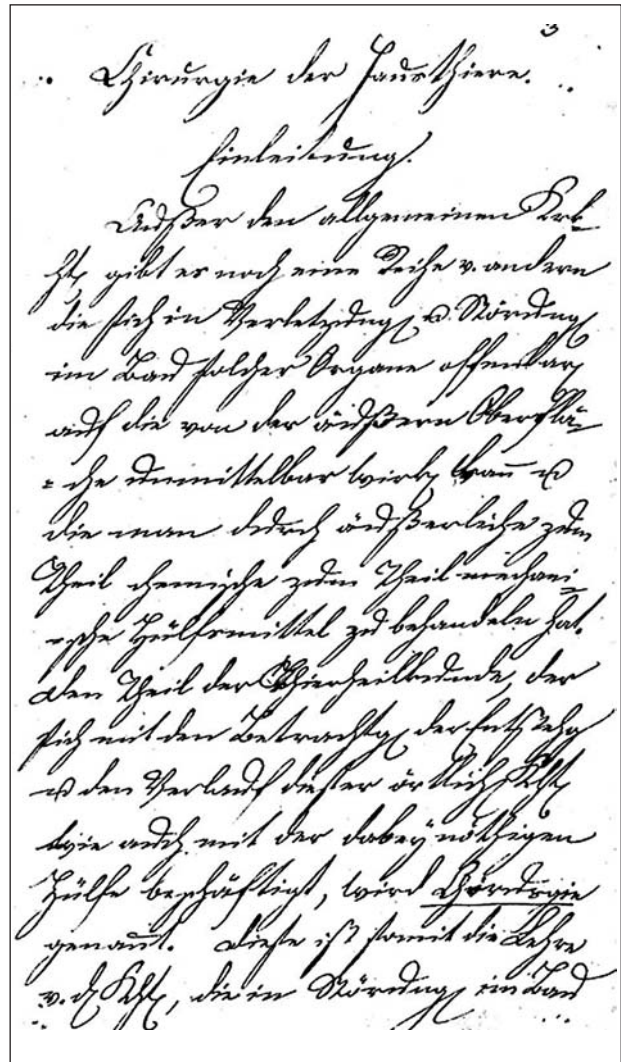 3
Chirurgie der Hausthiere.
Einleitung.
Außer den allgemeinen Krk-
htn gibt es noch eine Reihe v. andern
die sich in Verletzungn u. Störungn
im Bau solcher Organe offenbarn
auf die von der äußern Oberflä-
=che unmittelbar wirkn kann u
die man durch äußerliche zum
Theil chemische zum Theil mechani-
=sche Hülfsmittel zu behandeln hat.
Den Theil der Thierheilkunde, der
sich mit den Betrachtgn der Entstehg
u den Verlauf dieser örtlichn Khtn
wie auch mit der dabey nöthigen
Hülfe beschäftigt, wird Chirurgie
genannt. Diese ist somit die Lehre
v. d. Khtn, die in Störungn im Bau